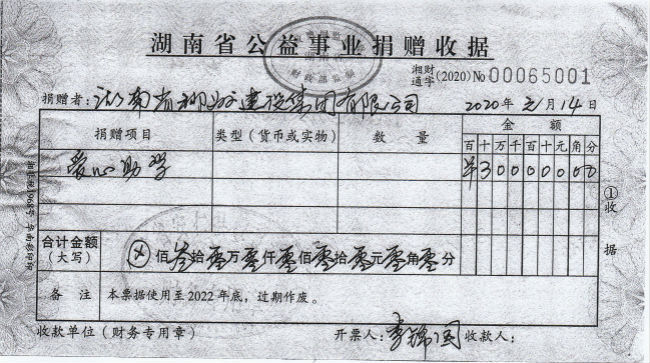 湖南省公益事业捐赠收据
湘财通字(2020) No 00065001
捐赠者：湖南省郴州建设集团有限公司 2020年元月14日
捐赠项目 类型（货币或实物） 数量 金额
百十万千百十元角分
爱心助学 ¥30000000
合计金额（大写） ⊗佰叁拾零万零仟零佰零拾零元零角零分
备注 本票据使用至2022年底，过期作废。
①收据
收款单位（财务专用章） 开票人：李锦国 收款人：